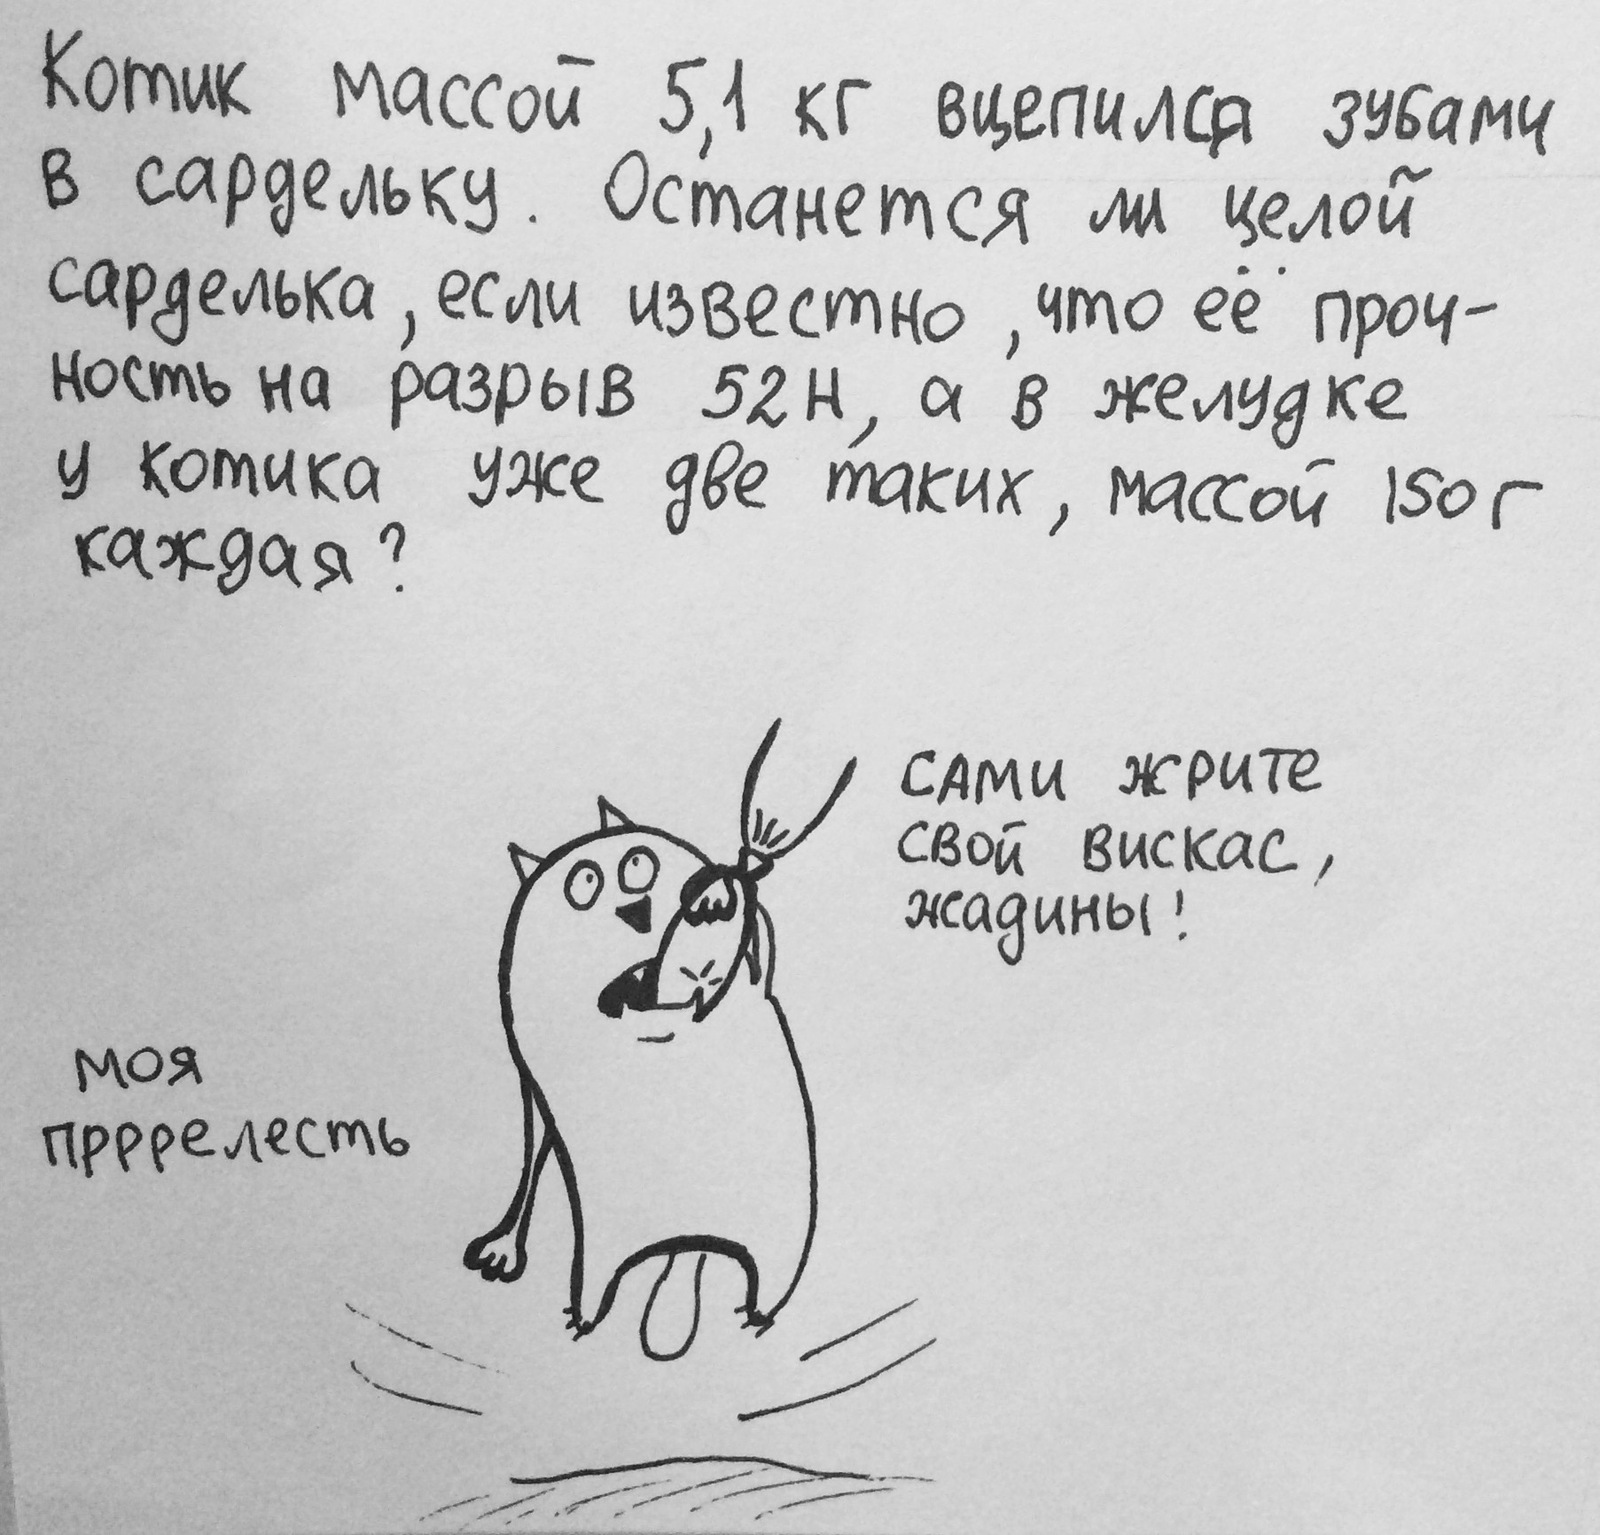 Котик массой 5,1 кг вцепился зубами
в сардельку. Останется ли целой
сарделька, если известно, что её проч-
ность на разрыв 52Н, а в желудке
у котика уже две таких, массой 150г
каждая?
САМИ ЖРИТЕ
СВОЙ ВИСКАС,
ЖАДИНЫ!
МОЯ
ПРРРЕЛЕСТЬ